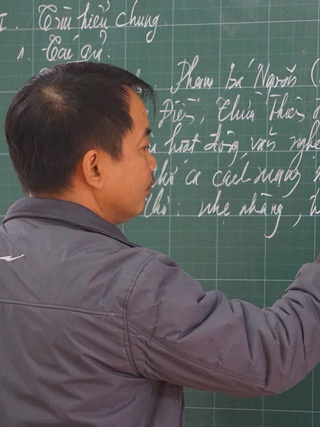 I. Tìm hiểu chung.
1. Tác giả:
Phạm Bá Ngoãn (
Điền, Thừa Thiên
hoạt động văn nghệ
ca cách mạng
thơ: nhẹ nhàng,